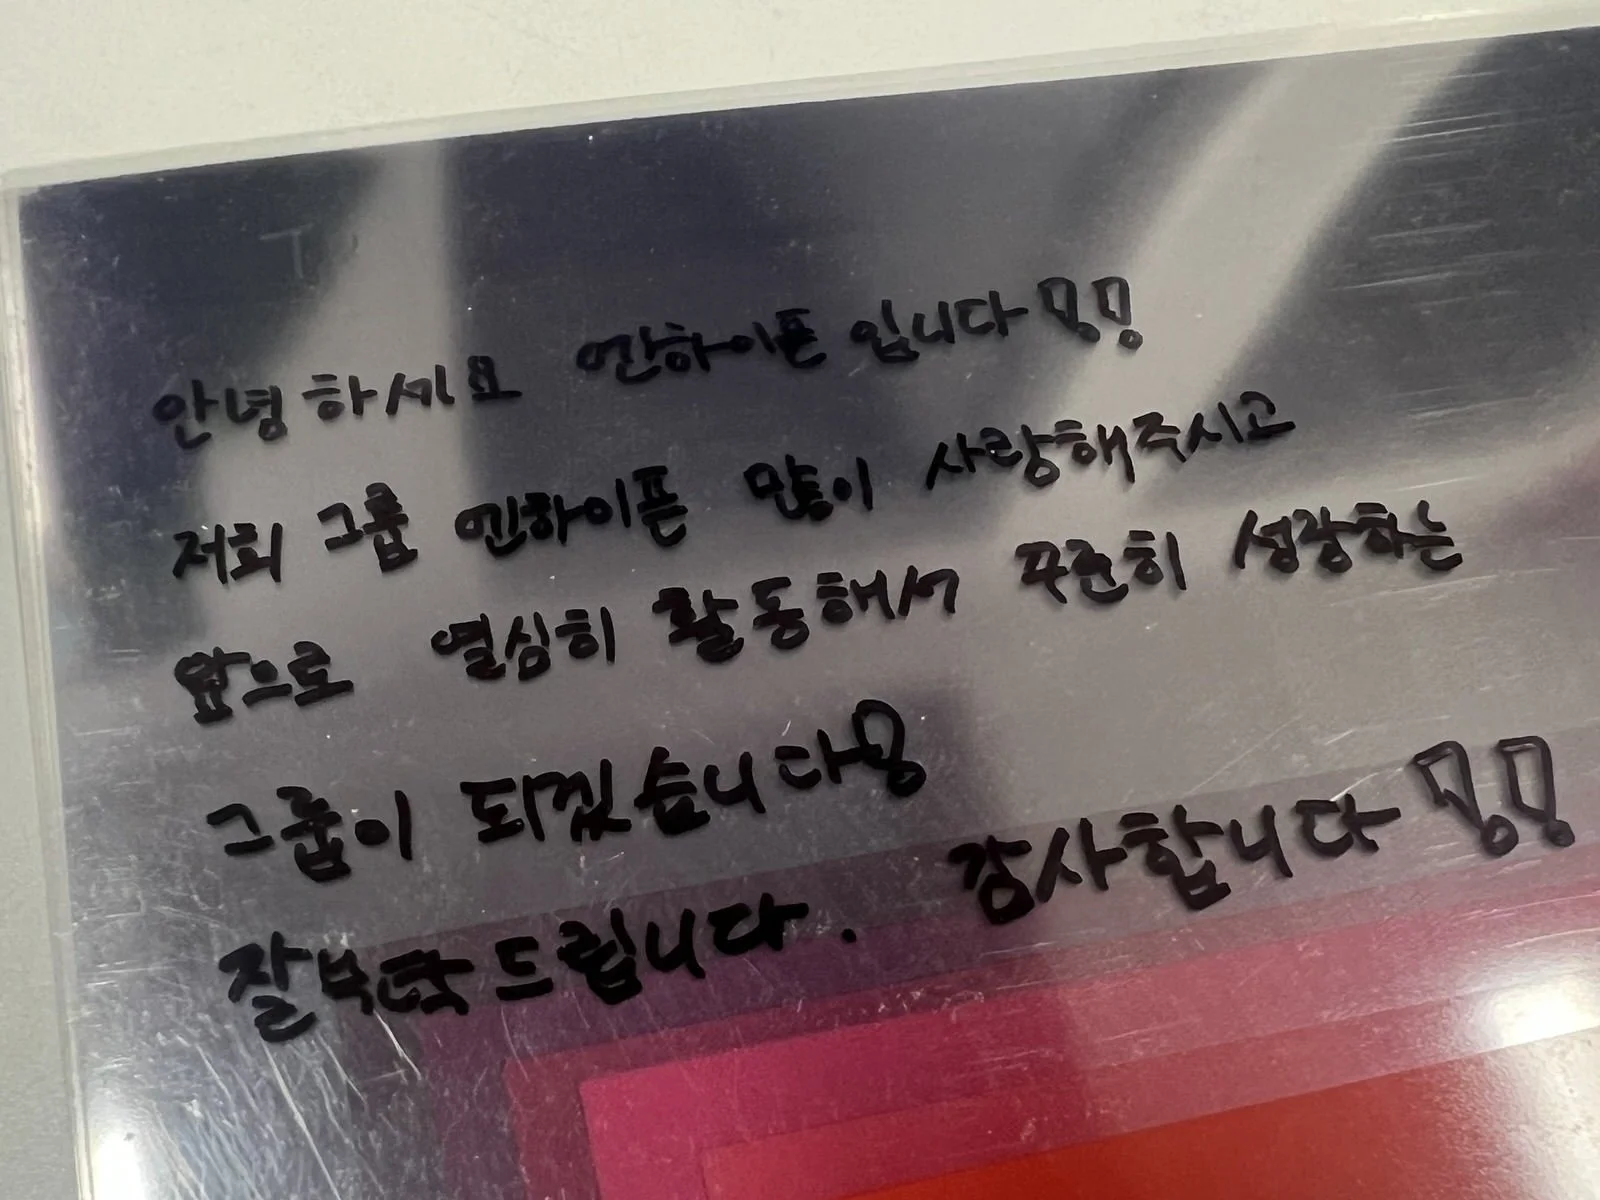 안녕하세요 엔하이픈 입니다!!
저희 그룹 엔하이픈 많이 사랑해주시고
앞으로 열심히 활동해서 꾸준히 성장하는
그룹이 되겠습니다!
잘부탁드립니다. 감사합니다!!